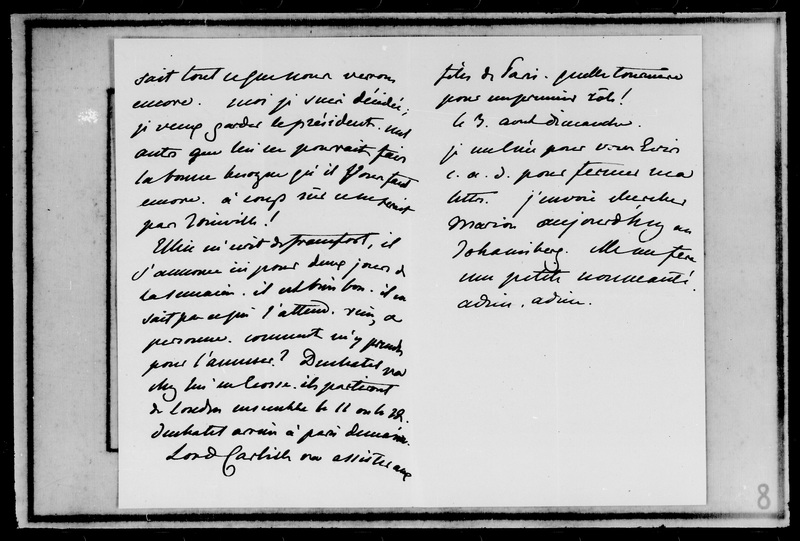 sait tout ce que nous verrons
encore. moi je suis décidée,
je veux garder le président. nul
autre que lui ne pourrait faire
la bonne besogne qu'il nous faut
encore. à coup sûr ce ne serait
pas Joinville!
Ellice m'écrit de francfort, il
s'annonce ici pour deux jours de
la semaine. il est bien bon. il ne
sait pas ce qui l'attend. rien, a
personne. comment m'y prendre
pour l'amuser? Duchatel va
chez lui en Ecosse. ils partiront
de Londres ensemble le 11 ou le 12.
Duchatel arrive à paris demain.
Lord Carlisle va assister aux
fêtes de Paris. quelle tournure
pour un premier
le 3. aout dimanche.
je me lève pour vous
c. a. d. pour fermer ma
lettre. j'envoie chercher
Marion aujourd'huy au
Johannisberg. Elle me fera
une petite nouveauté.
adieu, adieu.
8